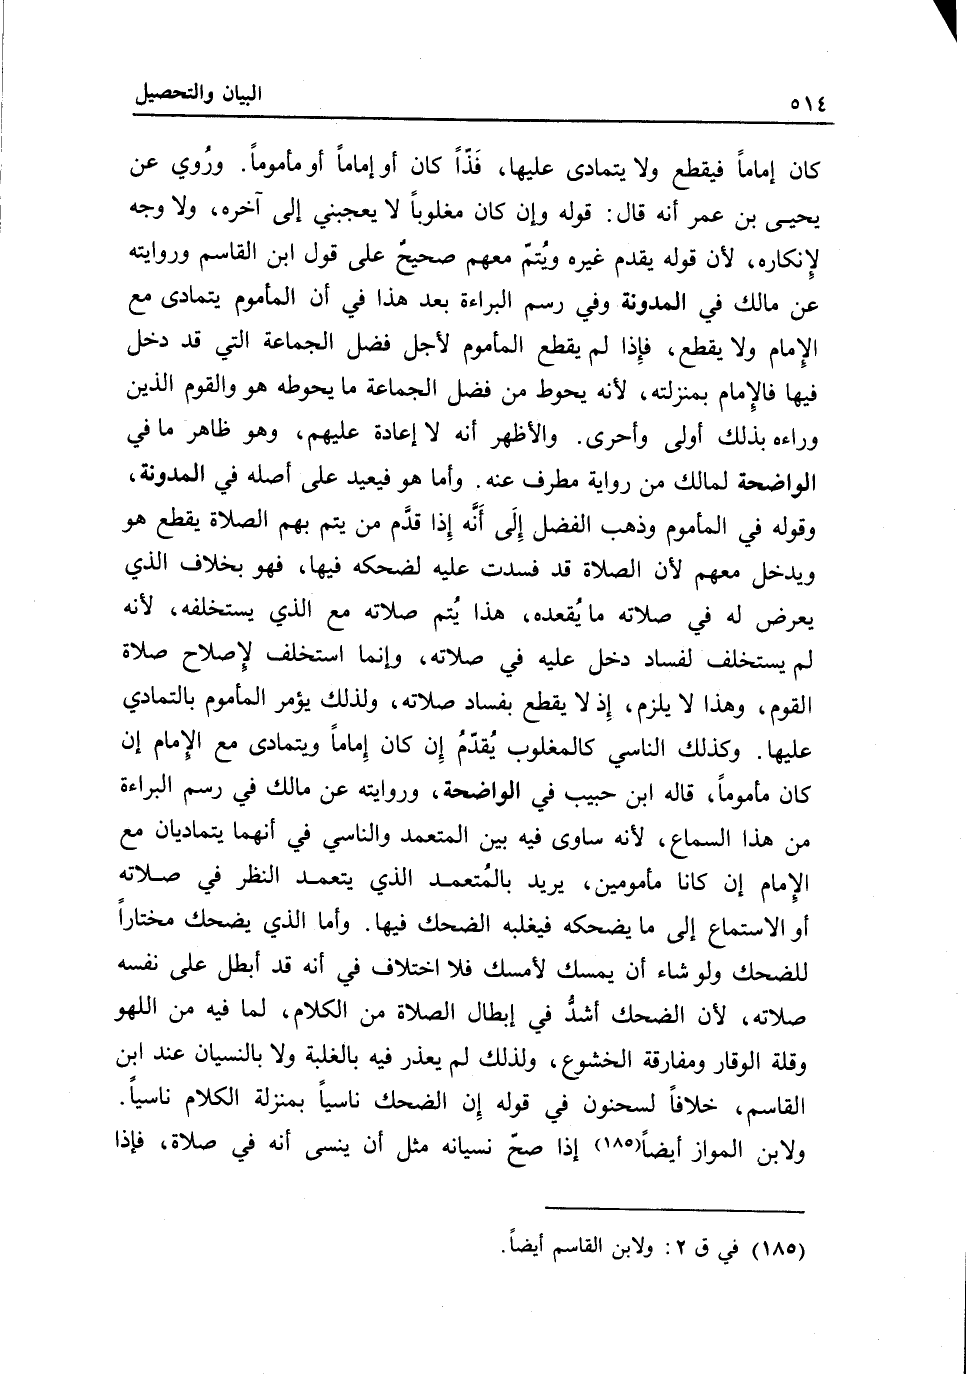 ٥١٤ البيان والتحصيل
كان إماماً فيقطع ولا يتمادى عليها، فَذّاً كان أو إماماً أو مأموماً. ورُوي عن
يحيى بن عمر أنه قال: قوله وإن كان مغلوباً لا يعجبني إلى آخره، ولا وجه
لإنكاره، لأن قوله يقدم غيره ويُتمّ معهم صحيحٌ على قول ابن القاسم وروايته
عن مالك في المدونة وفي رسم البراءة بعد هذا في أن المأموم يتمادى مع
الإمام ولا يقطع، فإذا لم يقطع المأموم لأجل فضل الجماعة التي قد دخل
فيها فالإمام بمنزلته، لأنه يحوط من فضل الجماعة ما يحوطه هو والقوم الذين
وراءه بذلك أولى وأحرى. والأظهر أنه لا إعادة عليهم، وهو ظاهر ما في
الواضحة لمالك من رواية مطرف عنه. وأما هو فيعيد على أصله في المدونة،
وقوله في المأموم وذهب الفضل إلَى أَنَّه إذا قدَّم من يتم بهم الصلاة يقطع هو
ويدخل معهم لأن الصلاة قد فسدت عليه لضحكه فيها، فهو بخلاف الذي
يعرض له في صلاته ما يُقعده، هذا يُتم صلاته مع الذي يستخلفه، لأنه
لم يستخلف لفساد دخل عليه في صلاته، وإنما استخلف لإصلاح صلاة
القوم، وهذا لا يلزم، إذ لا يقطع بفساد صلاته، ولذلك يؤمر المأموم بالتمادي
عليها. وكذلك الناسي كالمغلوب يُقدّمُ إن كان إماماً ويتمادى مع الإمام إن
كان مأموماً، قاله ابن حبيب في الواضحة، وروايته عن مالك في رسم البراءة
من هذا السماع، لأنه ساوى فيه بين المتعمد والناسي في أنهما يتماديان مع
الإمام إن كانا مأمومين، يريد بالمُتعمد الذي يتعمد النظر في صلاته
أو الاستماع إلى ما يضحكه فيغلبه الضحك فيها. وأما الذي يضحك مختاراً
للضحك ولو شاء أن يمسك لأمسك فلا اختلاف في أنه قد أبطل على نفسه
صلاته، لأن الضحك أشدُّ في إبطال الصلاة من الكلام، لما فيه من اللهو
وقلة الوقار ومفارقة الخشوع، ولذلك لم يعذر فيه بالغلبة ولا بالنسيان عند ابن
القاسم، خلافاً لسحنون في قوله إن الضحك ناسياً بمنزلة الكلام ناسياً.
ولابن المواز أيضاً(١٨٥) إذا صحّ نسيانه مثل أن ينسى أنه في صلاة، فإذا
(١٨٥) في ق ٢: ولابن القاسم أيضاً.